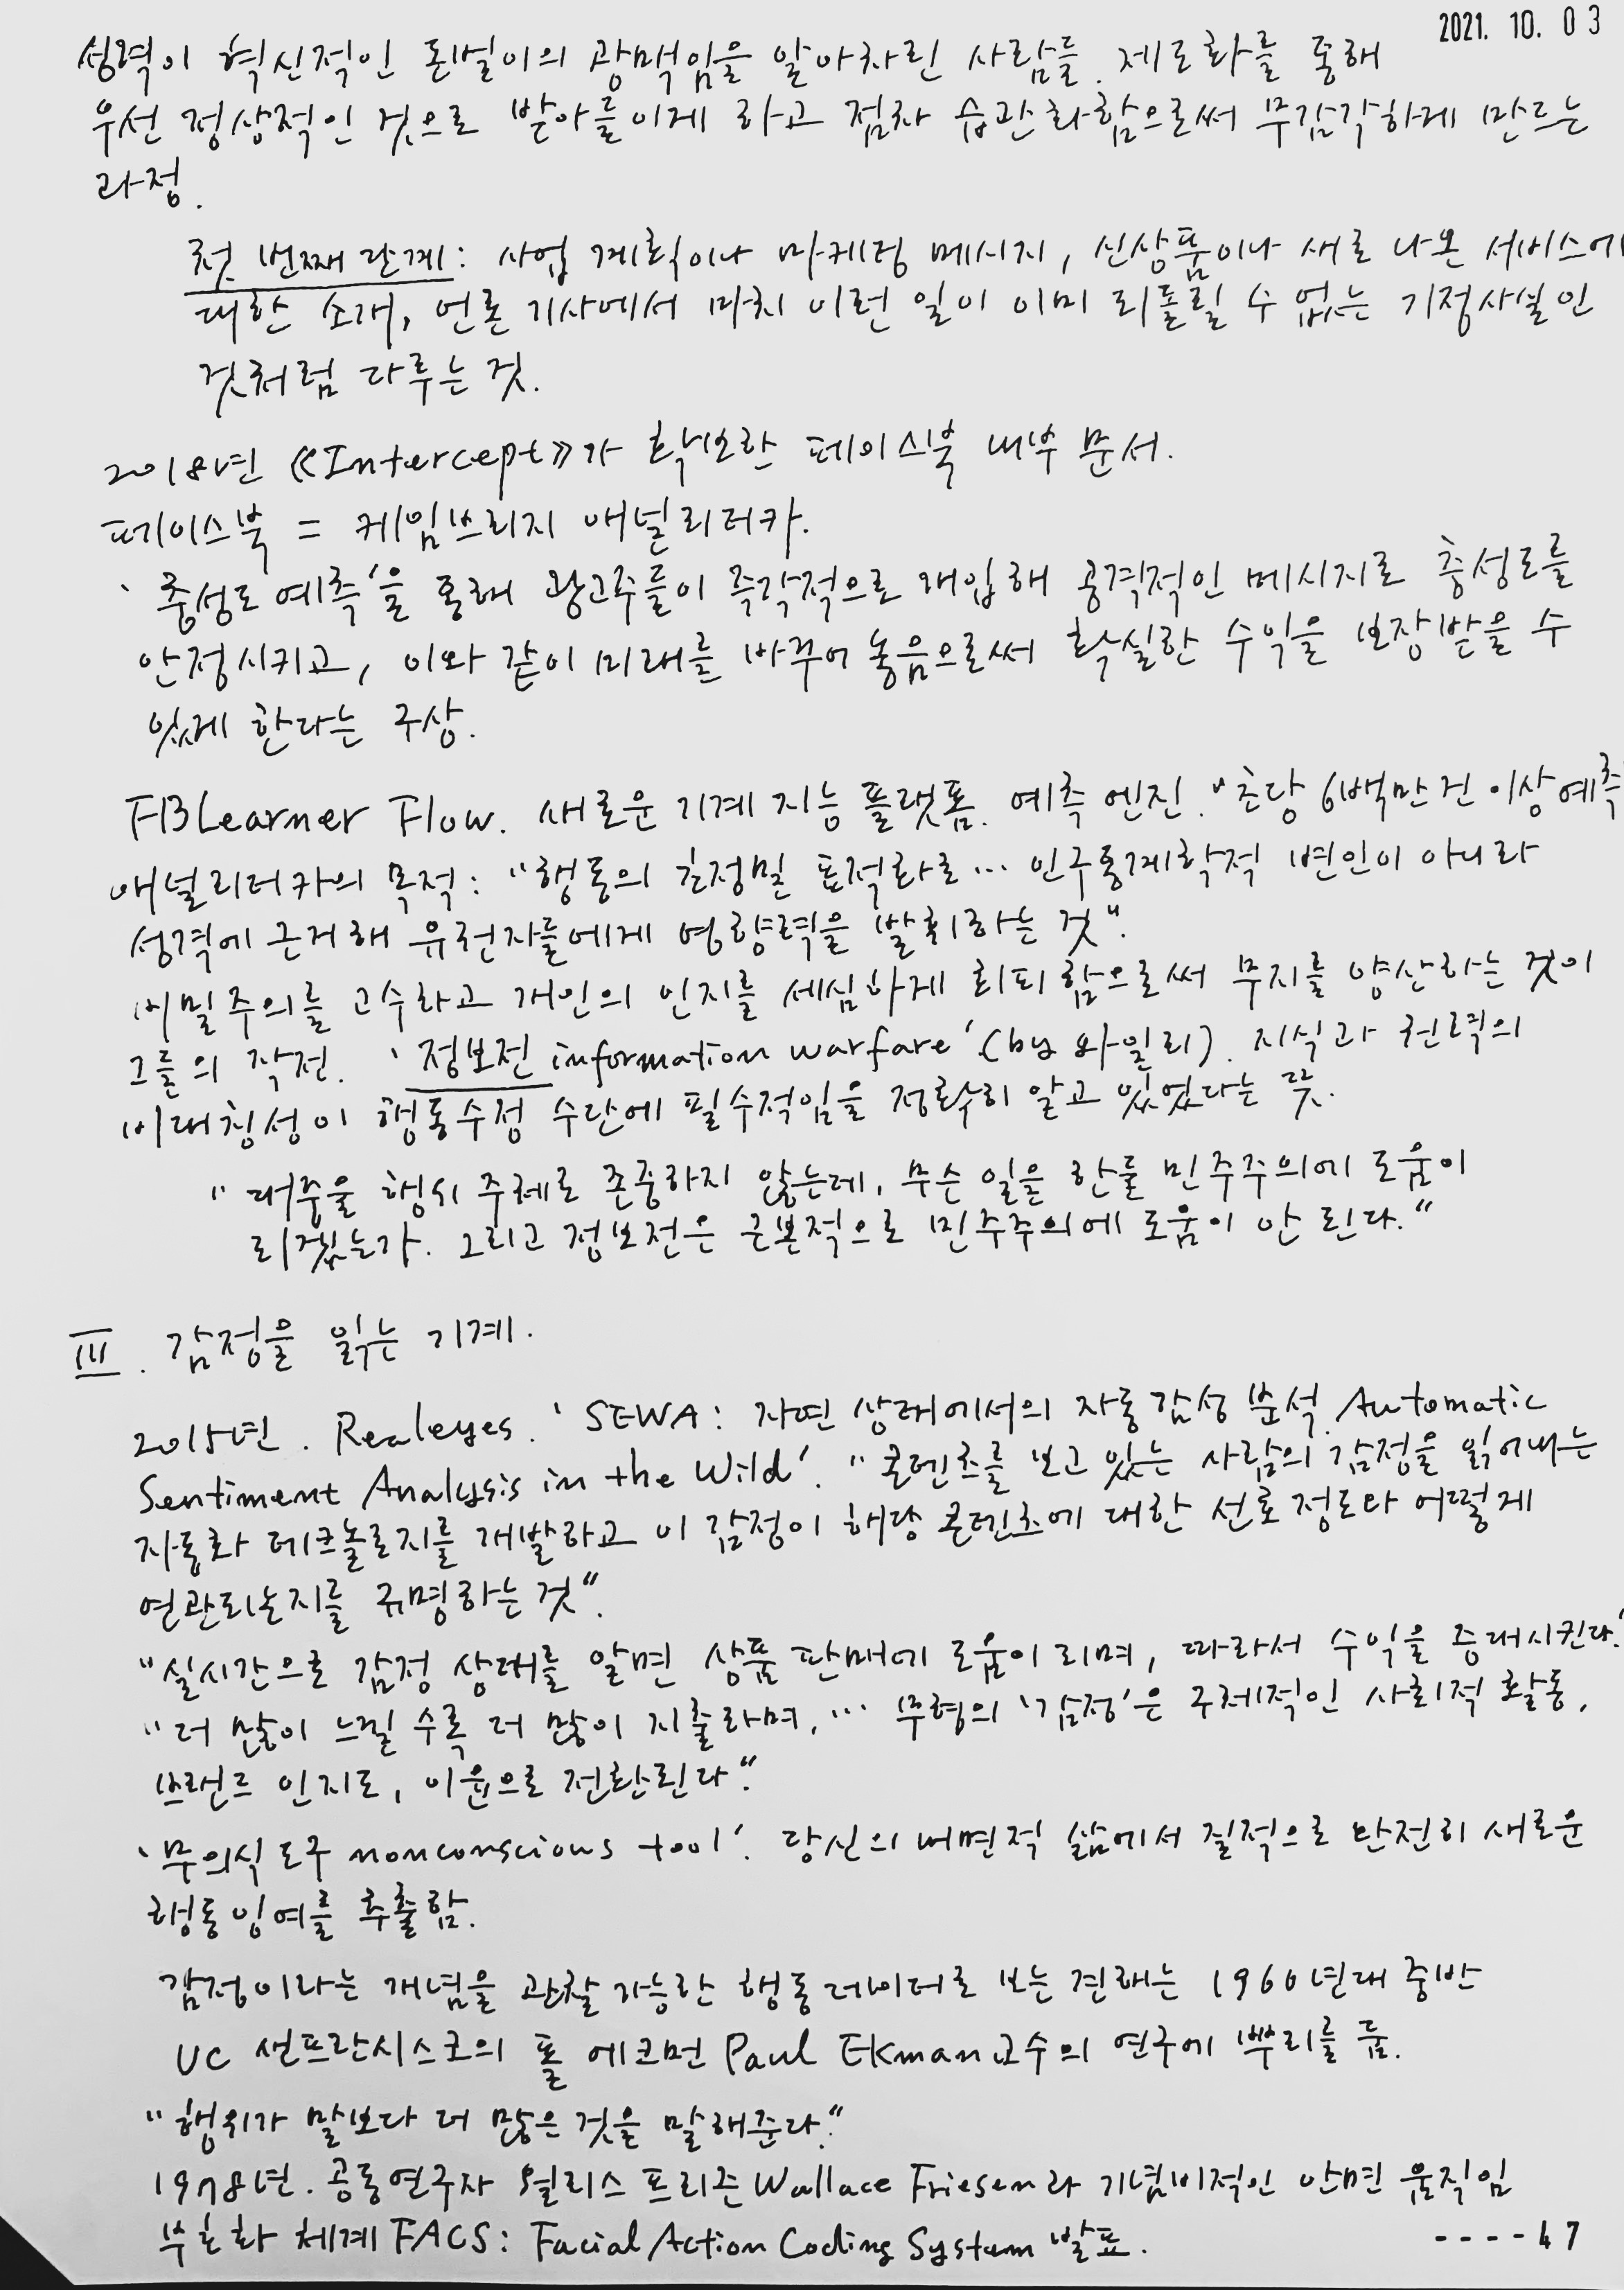 2021. 10. 03
성격이 혁신적인 돈벌이의 광맥임을 알아차린 사람들. 제도화를 통해
우선 정상적인 것으로 받아들이게 하고 점차 습관화함으로써 무감각하게 만드는
과정.
첫 번째 단계: 사업 계획이나 마케팅 메시지, 신상품이나 새로 나온 서비스에
대한 소개, 언론 기사에서 마치 이런 일이 이미 되돌릴 수 없는 기정사실인
것처럼 다루는 것.
2018년 《Intercept》가 확보한 페이스북 내부 문서.
페이스북 = 케임브리지 애널리티카.
'충성도 예측'을 통해 광고주들이 즉각적으로 개입해 공격적인 메시지로 충성도를
안정시키고, 이와 같이 미래를 바꾸어 놓음으로써 확실한 수익을 보장받을 수
있게 한다는 구상.
FBLearner Flow. 새로운 기계 지능 플랫폼. 예측 엔진. "초당 6백만 건 이상 예측"
애널리티카의 목적: "행동의 초정밀 표적화로… 인구통계학적 변인이 아니라
성격에 근거해 유권자들에게 영향력을 발휘하는 것".
비밀주의를 고수하고 개인의 인지를 세심하게 회피함으로써 무지를 양산하는 것이
그들의 작전. '정보전 information warfare'(by 와일리). 지식과 권력의
비대칭성이 행동수정 수단에 필수적임을 정확히 알고 있었다는 뜻.
"대중을 행위 주체로 존중하지 않는데, 무슨 일을 한들 민주주의에 도움이
되겠는가. 그리고 정보전은 근본적으로 민주주의에 도움이 안 된다."
III. 감정을 읽는 기계.
2015년. Realeyes. 'SEWA: 자연 상태에서의 자동 감성 분석 Automatic
Sentiment Analysis in the Wild'. "콘텐츠를 보고 있는 사람의 감정을 읽어내는
자동화 테크놀로지를 개발하고 이 감정이 해당 콘텐츠에 대한 선호 정도와 어떻게
연관되는지를 규명하는 것".
"실시간으로 감정 상태를 알면 상품 판매에 도움이 되며, 따라서 수익을 증대시킨다."
"더 많이 느낄 수록 더 많이 지출하며, … 무형의 '감정'은 구체적인 사회적 활동,
브랜드 인지도, 이윤으로 전환된다."
'무의식 도구 nonconscious tool'. 당신의 내면적 삶에서 질적으로 완전히 새로운
행동잉여를 추출함.
감정이라는 개념을 관찰 가능한 행동 데이터로 보는 견해는 1960년대 중반
UC 샌프란시스코의 폴 에크먼 Paul Ekman 교수의 연구에 뿌리를 둠.
"행위가 말보다 더 많은 것을 말해준다."
1978년. 공동연구자 월리스 프리즌 Wallace Friesen과 기념비적인 안면 움직임
부호화 체계 FACS: Facial Action Coding System 발표.
----47